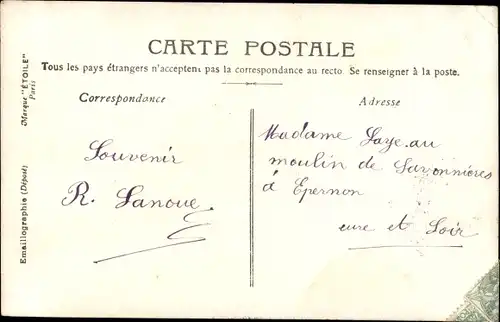 CARTE POSTALE
Tous les pays étrangers n'acceptent pas la correspondance au recto. Se renseigner à la poste.
Correspondance
Adresse
Souvenir
R. Lanoue
Madame Laye au
moulin de Savonnières
à Epernon
eure et Loir
Emaillographie (Déposé) Marque "ÉTOILE"
Paris